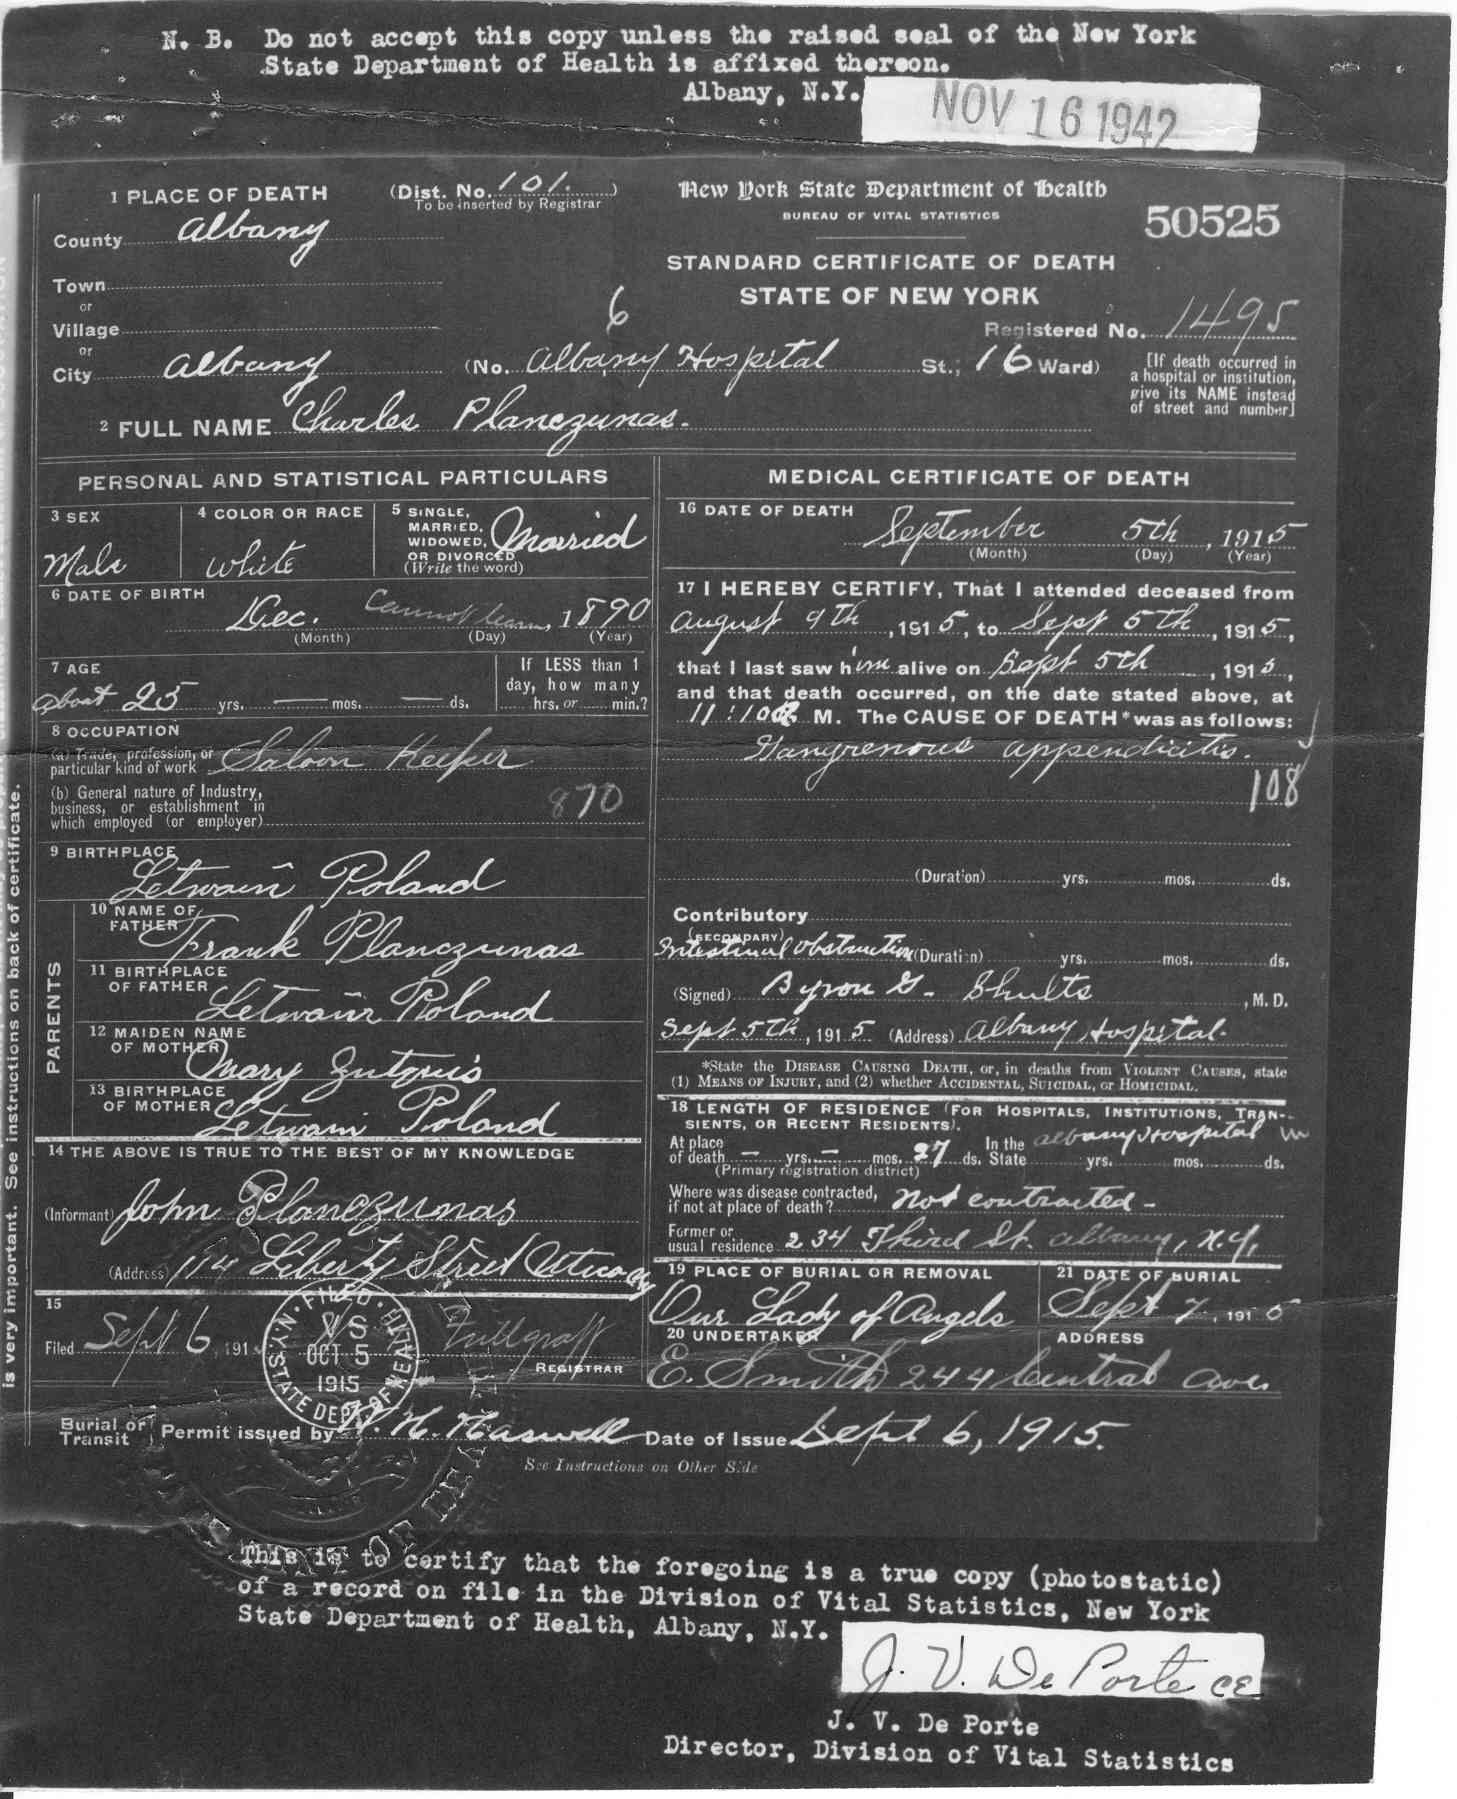 N. B. Do not accept this copy unless the raised seal of the New York
State Department of Health is affixed thereon.
Albany, N.Y.
NOV 16 1942
1 PLACE OF DEATH (Dist. No. 101.)
To be inserted by Registrar
New York State Department of Health
BUREAU OF VITAL STATISTICS
50525
County Albany
STANDARD CERTIFICATE OF DEATH
STATE OF NEW YORK
Town
or
Village
or
6
Registered No. 1495
City Albany (No. Albany Hospital St.; 16 Ward)
[If death occurred in
a hospital or institution,
give its NAME instead
of street and number]
2 FULL NAME Charles Planczunas.
PERSONAL AND STATISTICAL PARTICULARS
3 SEX
Male
4 COLOR OR RACE
White
5 SINGLE,
MARRIED,
WIDOWED,
OR DIVORCED
(Write the word)
Married
6 DATE OF BIRTH
Dec. Cannot learn, 1890
(Month) (Day) (Year)
7 AGE
about 25 yrs. — mos. — ds.
If LESS than 1
day, how many
hrs. or min.?
8 OCCUPATION
(a) Trade, profession, or
particular kind of work Saloon Keeper
(b) General nature of Industry,
business, or establishment in
which employed (or employer)
870
9 BIRTHPLACE
Letwain Poland
PARENTS
10 NAME OF
FATHER
Frank Planczunas
11 BIRTHPLACE
OF FATHER
Letwain Poland
12 MAIDEN NAME
OF MOTHER
Mary
13 BIRTHPLACE
OF MOTHER
Letwain Poland
14 THE ABOVE IS TRUE TO THE BEST OF MY KNOWLEDGE
(Informant) John Planczunas
(Address) 114 Liberty Street Utica NY
15
Filed Sept 6, 191
REGISTRAR
FILED
V S
OCT 5
1915
N.Y. STATE DEPT. OF HEALTH
MEDICAL CERTIFICATE OF DEATH
16 DATE OF DEATH
September 5th, 1915
(Month) (Day) (Year)
17 I HEREBY CERTIFY, That I attended deceased from
August 9th, 1915, to Sept 5th, 1915,
that I last saw him alive on Sept 5th, 1915,
and that death occurred, on the date stated above, at
11:10 M. The CAUSE OF DEATH* was as follows:
Gangrenous appendicitis.
108
(Duration) yrs. mos. ds.
Contributory
(SECONDARY)
Intestinal obstruction (Duration) yrs. mos. ds.
(Signed) Byron G. Shults, M. D.
Sept 5th, 1915 (Address) Albany Hospital.
*State the DISEASE CAUSING DEATH, or, in deaths from VIOLENT CAUSES, state
(1) MEANS OF INJURY, and (2) whether ACCIDENTAL, SUICIDAL, or HOMICIDAL.
18 LENGTH OF RESIDENCE (FOR HOSPITALS, INSTITUTIONS, TRAN-
SIENTS, OR RECENT RESIDENTS).
At place
of death — yrs. — mos. 27 ds.
In the
State yrs. mos. ds.
Albany Hospital
(Primary registration district)
Where was disease contracted,
if not at place of death? not contracted -
Former or
usual residence 234 Third St. Albany, N.Y.
19 PLACE OF BURIAL OR REMOVAL
Our Lady of Angels
21 DATE OF BURIAL
Sept 7, 1915
20 UNDERTAKER
ADDRESS
E. Smith 244 Central Ave.
Burial or
Transit
Permit issued by H. Haswell Date of Issue Sept 6, 1915.
See Instructions on Other Side
is very important. See instructions on back of certificate.
This is to certify that the foregoing is a true copy (photostatic)
of a record on file in the Division of Vital Statistics, New York
State Department of Health, Albany, N.Y.
J. V. De Porte CE
J. V. De Porte
Director, Division of Vital Statistics